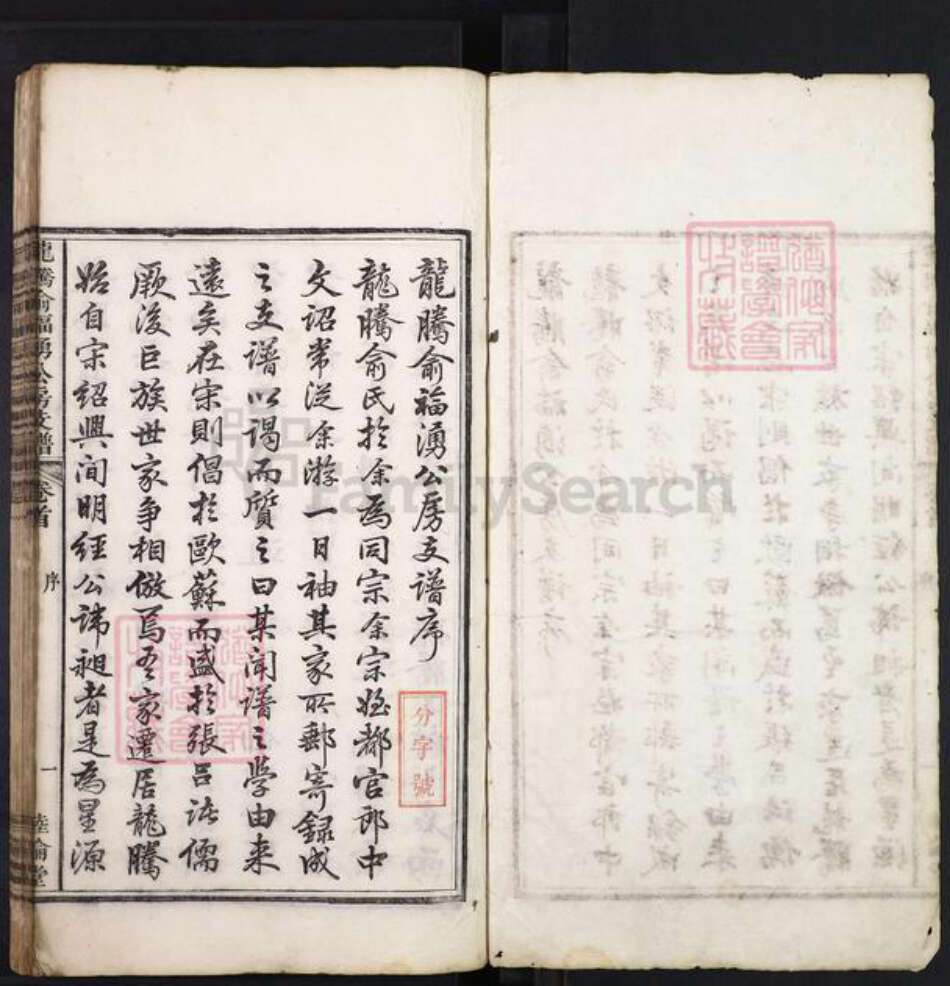 龍騰俞福湧公房支譜序
龍騰俞氏於余為同宗余宗姪都官郎中
文詔常從余游一日袖其家所郵寄錄成
之支譜以謁而質之曰某聞譜之學由来
遠矣在宋則倡於歐蘇而盛於張呂諸儒
厥後巨族世家爭相倣焉吾家遷居龍騰
始自宋紹興间明經公諱昶者是為星源
分字號
龍騰俞福湧公房支譜
卷首
序
一
堂
FamilySearch